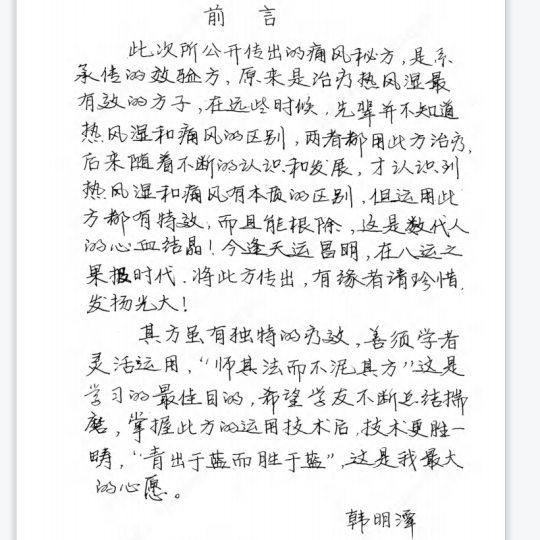 前言
此次所公开传出的痛风秘方，是系
承传的效验方，原来是治疗热风湿最
有效的方子，在远些时候，先辈并不知道
热风湿和痛风的区别，两者都用此方治疗，
后来随着不断的认识和发展，才认识到
热风湿和痛风有本质的区别，但运用此
方都有特效，而且能根除，这是数代人
的心血结晶！今逢天运昌明，在八运之
果报时代．将此方传出，有缘者请珍惜，
发扬光大！
其方虽有独特的疗效，善须学者
灵活运用，“师其法而不泥其方”这是
学习的最佳目的，希望学友不断总结揣
磨，掌握此方的运用技术后，技术更胜一
畴，“青出于蓝而胜于蓝”，这是我最大
的心愿。
韩明